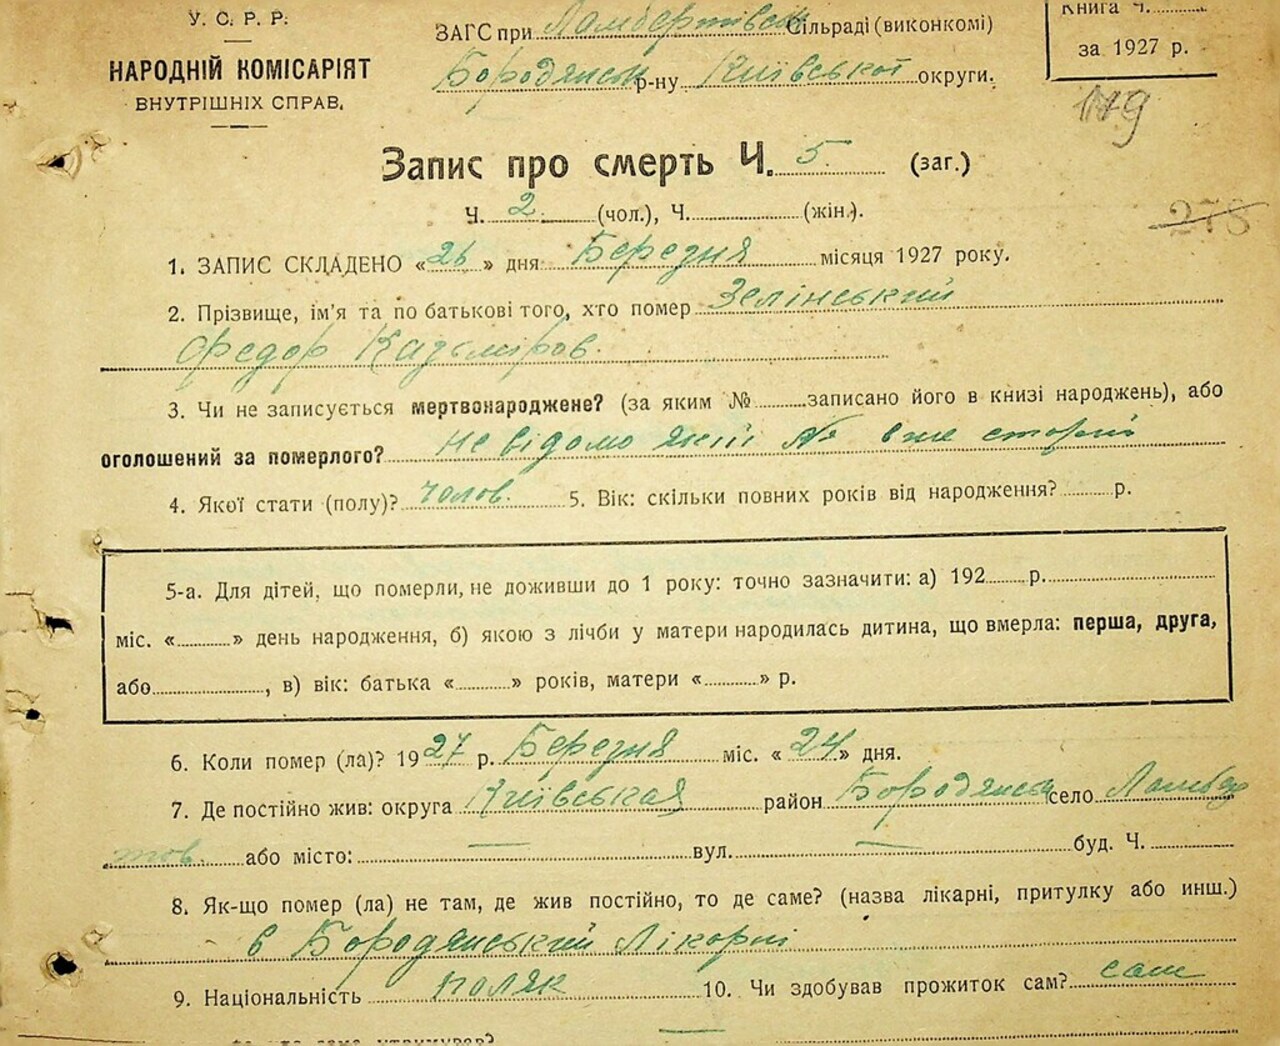 У. С. Р. Р.
НАРОДНІЙ КОМІСАРІЯТ
ВНУТРІШНІХ СПРАВ.
ЗАГС при Ламбертівськ Сільраді (виконкомі)
Бородянськ р-ну Київської округи.
Книга Ч.
за 1927 р.
119
278
Запис про смерть Ч. 5. (заг.)
Ч. 2 (чол.), Ч. (жін.).
1. ЗАПИС СКЛАДЕНО «26» дня Березня місяця 1927 року.
2. Прізвище, ім'я та по батькові того, хто помер Зелінський
Федор Казьміров.
3. Чи не записується мертвонароджене? (за яким № записано його в книзі народжень), або
оголошений за померлого? не відомо який № вже старий
4. Якої стати (полу)? чолов. 5. Вік: скільки повних років від народження? р.
5-а. Для дітей, що померли, не доживши до 1 року: точно зазначити: а) 192 р.
міс. « » день народження, б) якою з лічби у матери народилась дитина, що вмерла: перша, друга,
або , в) вік: батька « » років, матери « » р.
6. Коли помер (ла)? 1927 р. Березня міс. «24» дня.
7. Де постійно жив: округа Київськая район Бородянськ село Ламбер
тов. або місто: — вул. — буд. Ч.
8. Як-що помер (ла) не там, де жив постійно, то де саме? (назва лікарні, притулку або инш.)
в Бородянський Лікорні
9. Національність поляк 10. Чи здобував прожиток сам? сам